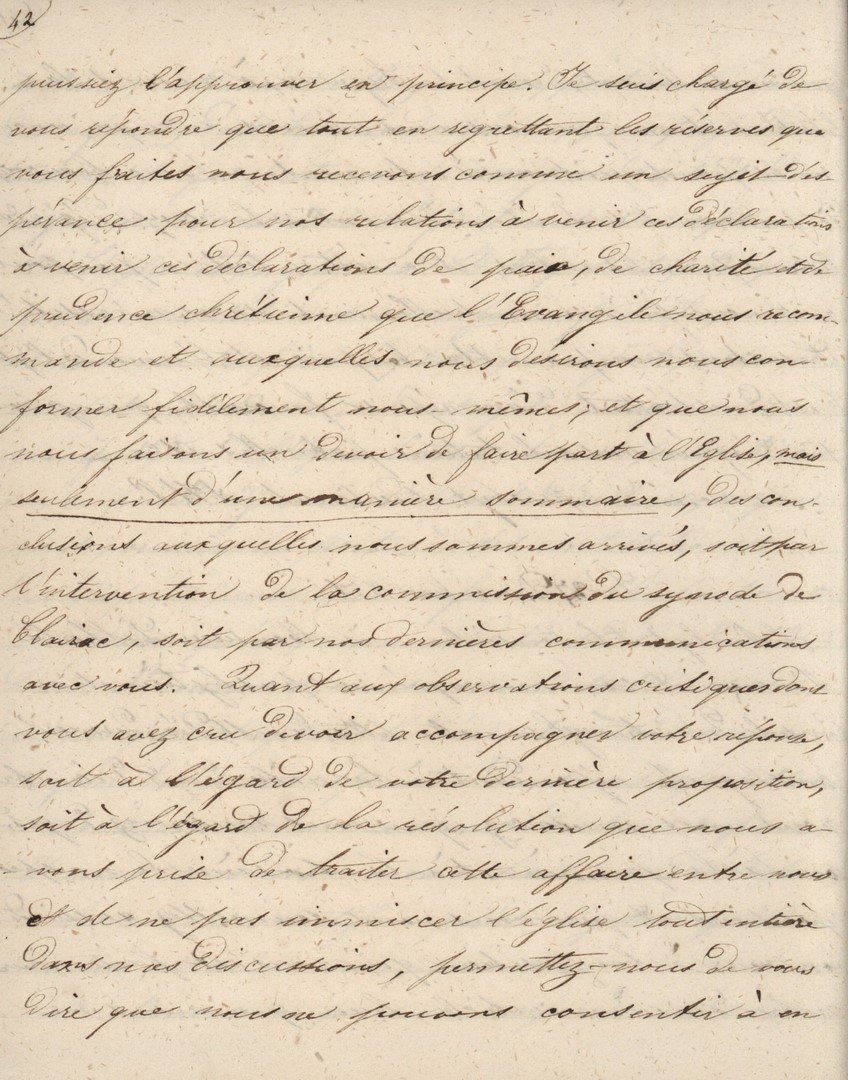 42
puissiez l'approuver en principe. Je suis chargé de
vous répondre que tout en regrettant les réserves que
vous faites nous recevons comme un sujet d'es
pérance pour nos relations à venir ces déclarations
à venir ces déclarations de paix, de charité et de
prudence chrétienne que l'Evangile nous recom-
mande et auxquelles nous desirons nous con
former fidèlement nous-mêmes; et que nous
nous faisons un devoir de faire part à l'Eglise, mais
seulement d'une manière sommaire, des con-
clusions auxquelles nous sommes arrivés, soit par
l'intervention de la commission du synode de
Clairac, soit par nos dernières communications
avec vous. Quant aux observations critiques dont
vous avez cru devoir accompagner votre réponse,
soit à l'égard de votre dernière proposition,
soit à l'égard de la résolution que nous a-
vons prise de traiter cette affaire entre nous
et de ne pas immiscer l'église tout entière
dans nos discussions, permettez-nous de vous
dire que nous ne pouvons consentir à en